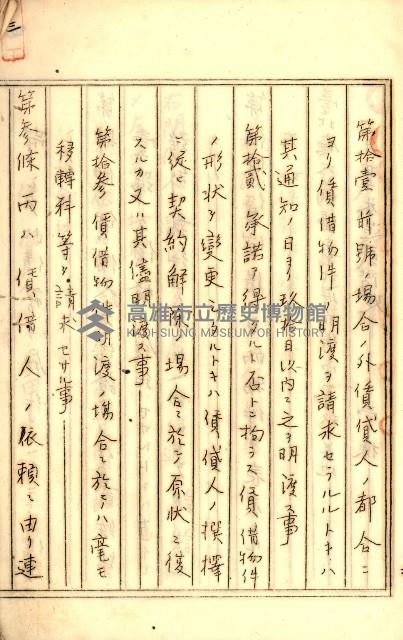 三
第拾壹 前號ノ場合ノ外賃貸人ノ都合ニ
ヨリ賃借物件ノ明渡ヲ請求セラルルトキハ
其通知ノ日ヨリ玖拾日以内ニ之ヲ明渡ス事
第拾貳 承諾ヲ得タルト否トニ拘ラス賃借物件
ノ形狀ヲ變更シタルトキハ賃貸人ノ撰擇
ニ從ヒ契約解除ノ場合ニ於テ原狀ニ復
スルカ又ハ其儘明渡ス事
第拾參 賃借物件明渡ノ場合ニ於テハ毫モ
移轉料等ヲ請求セサル事
第參條 丙ハ賃借人ノ依賴ニ由リ連
高雄市立歷史博物館
KAOHSIUNG MUSEUM OF HISTORY